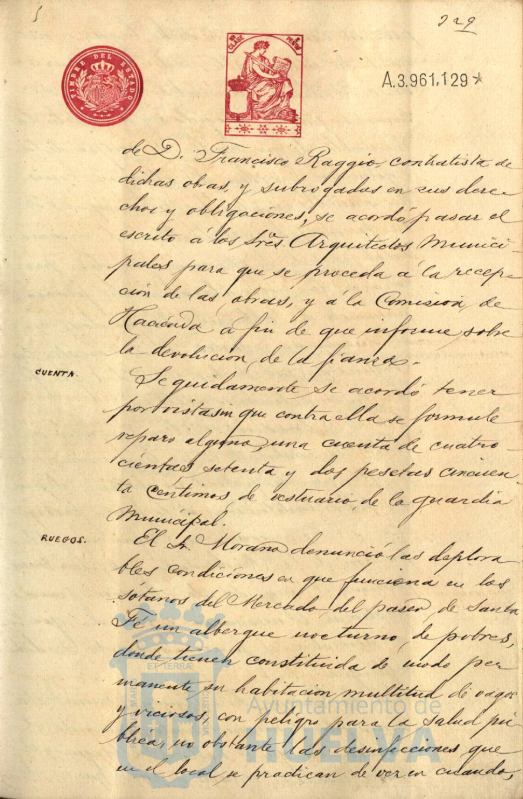 329
TIMBRE DEL ESTADO
A.3.961,129*
de D. Francisco Raggio, contratista de
dichas obras, y subrogados en sus dere-
chos y obligaciones, se acordó pasar el
escrito á los Sres Arquitectos Munici-
pales para que se proceda á la recep-
ción de las obras, y á la Comisión de
Hacienda á fin de que informe sobre
la devolucion de la fianza.
CUENTA.
Seguidamente se acordó tener
por vista sin que contra ella se formule
reparo alguno, una cuenta de cuatro-
cientas setenta y dos pesetas cincuen-
ta céntimos, de vestuario de la guardia
Municipal.
RUEGOS.
El Sr. Morano denunció las deplora-
bles condiciones en que funciona en los
sotanos del Mercado del paseo de Santa
Fé un albergue nocturno de pobres,
donde tienen constituida de modo per
manente su habitacion multitud de vagos
y viciosos, con peligro para la salud pú-
blica, no obstante las desinfecciones que
en el local se practican de vez en cuando,
Ayuntamiento de
HUELVA